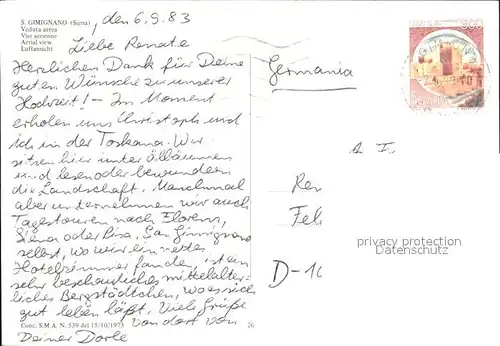 S. GIMIGNANO (Siena)
Veduta aerea
Vue aerienne
Aerial view
Luftansicht
, den 6.9.83
Liebe Renate
Herzlichen Dank für Deine
guten Wünsche zu unserer
Hochzeit! – Im Moment
erholen uns Christoph und
ich in der Toskana. Wir
sitzen hier unter Ölbäumen
und lesen oder bewundern
die Landschaft. Manchmal
aber unternehmen wir auch
Tagestouren nach Florenz,
Siena oder Pisa. San Gimignano
selbst, wo wir ein nettes
Hotelzimmer fanden, ist ein
sehr beschauliches mittelalter-
liches Bergstädtchen, wo es sich
gut leben läßt. Viele Grüße
von dort von
Deiner Dorle
Conc. S.M.A. N. 539 del 15/10/1973
26
Germania
Ren
Fel
D-10
privacy protection
Datenschutz